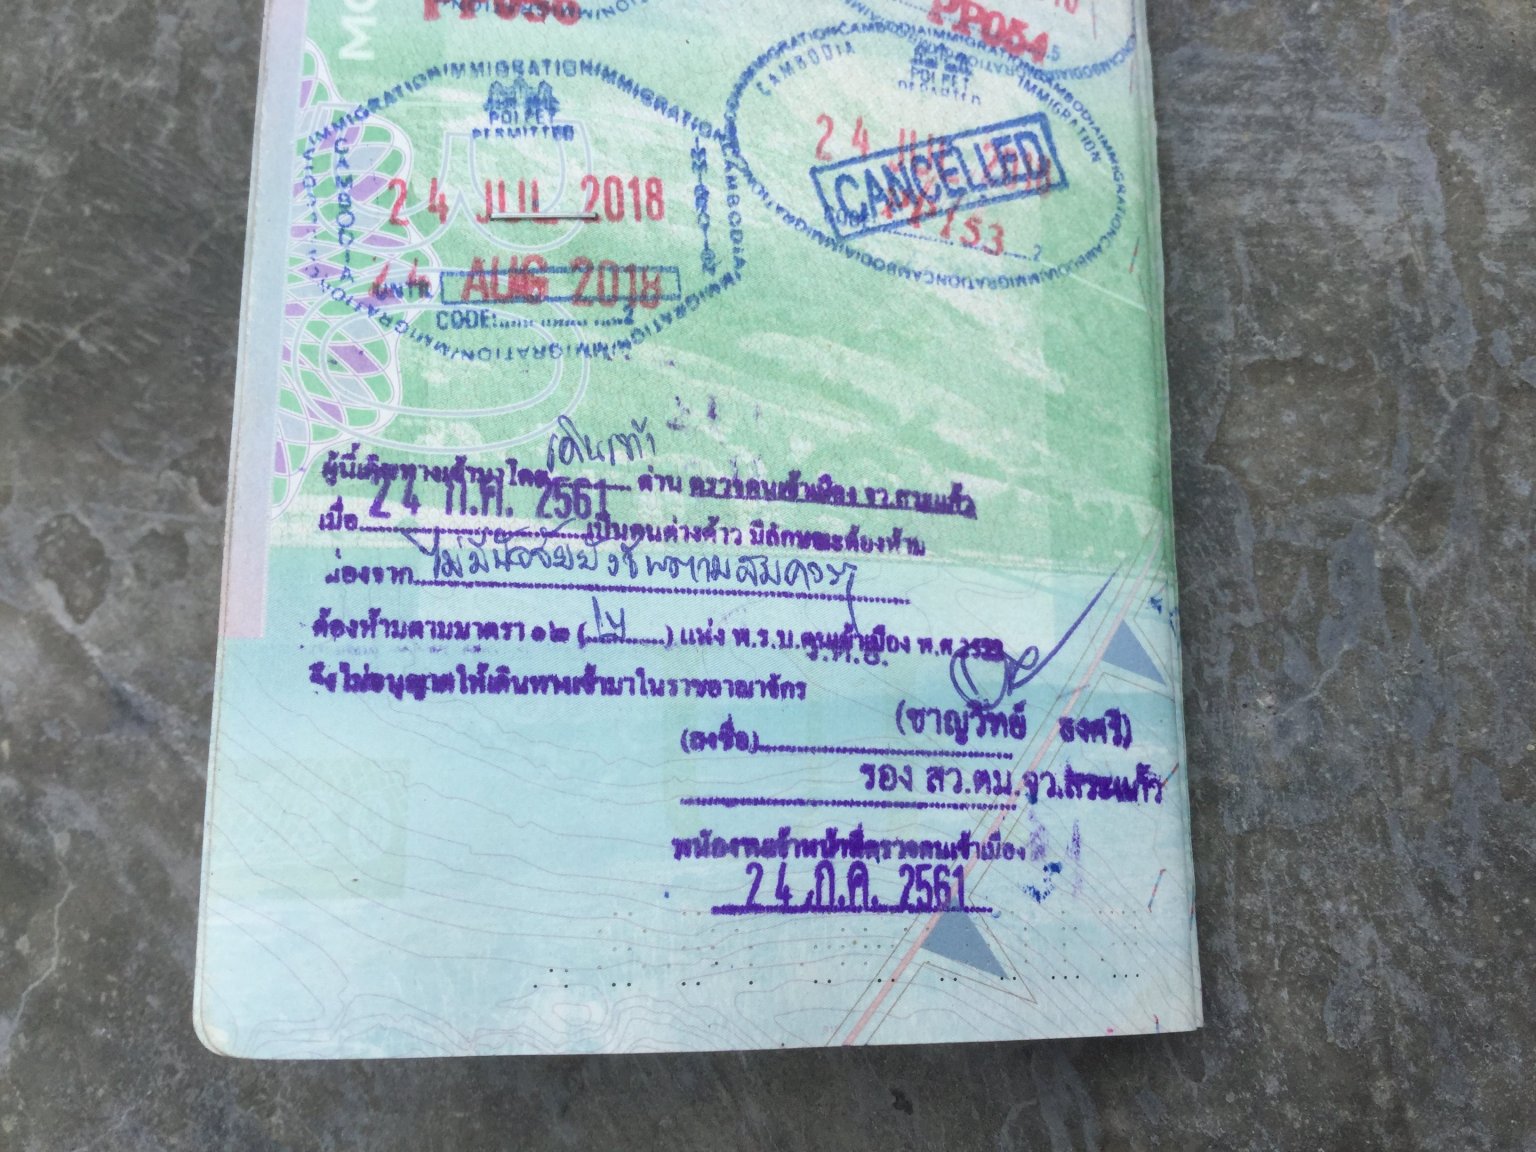 MO
PP056
PP054
IMMIGRATION/IMMIGRATION/IMMIGRATION
CAMBODIA
POI PET
PERMITTED
24 JUL 2018
UNTIL 24 AUG 2018
CODE: 2
CAMBODIA
IMMIGRATION
POI PET
DEPARTED
24 JUL 2018
CANCELLED
2
เดินเท้า
ผู้นี้เดินทางเข้ามาโดย ด่าน ตรวจคนเข้าเมือง จว.สระแก้ว
เมื่อ 24 ก.ค. 2561 เป็นคนต่างด้าว มีลักษณะต้องห้าม
เนื่องจาก ไม่มีปัจจัยยังชีพตามสมควร
ต้องห้ามตามมาตรา ๑๒ ( ) แห่ง พ.ร.บ.คนเข้าเมือง พ.ศ.2522
จึงไม่อนุญาตให้เดินทางเข้ามาในราชอาณาจักร
ร.ต.อ.
(ลงชื่อ) (ชาญวิทย์ ธงศรี)
รอง สว.ตม.จว.สระแก้ว
พนักงานเจ้าหน้าที่ตรวจคนเข้าเมือง
24 ก.ค. 2561